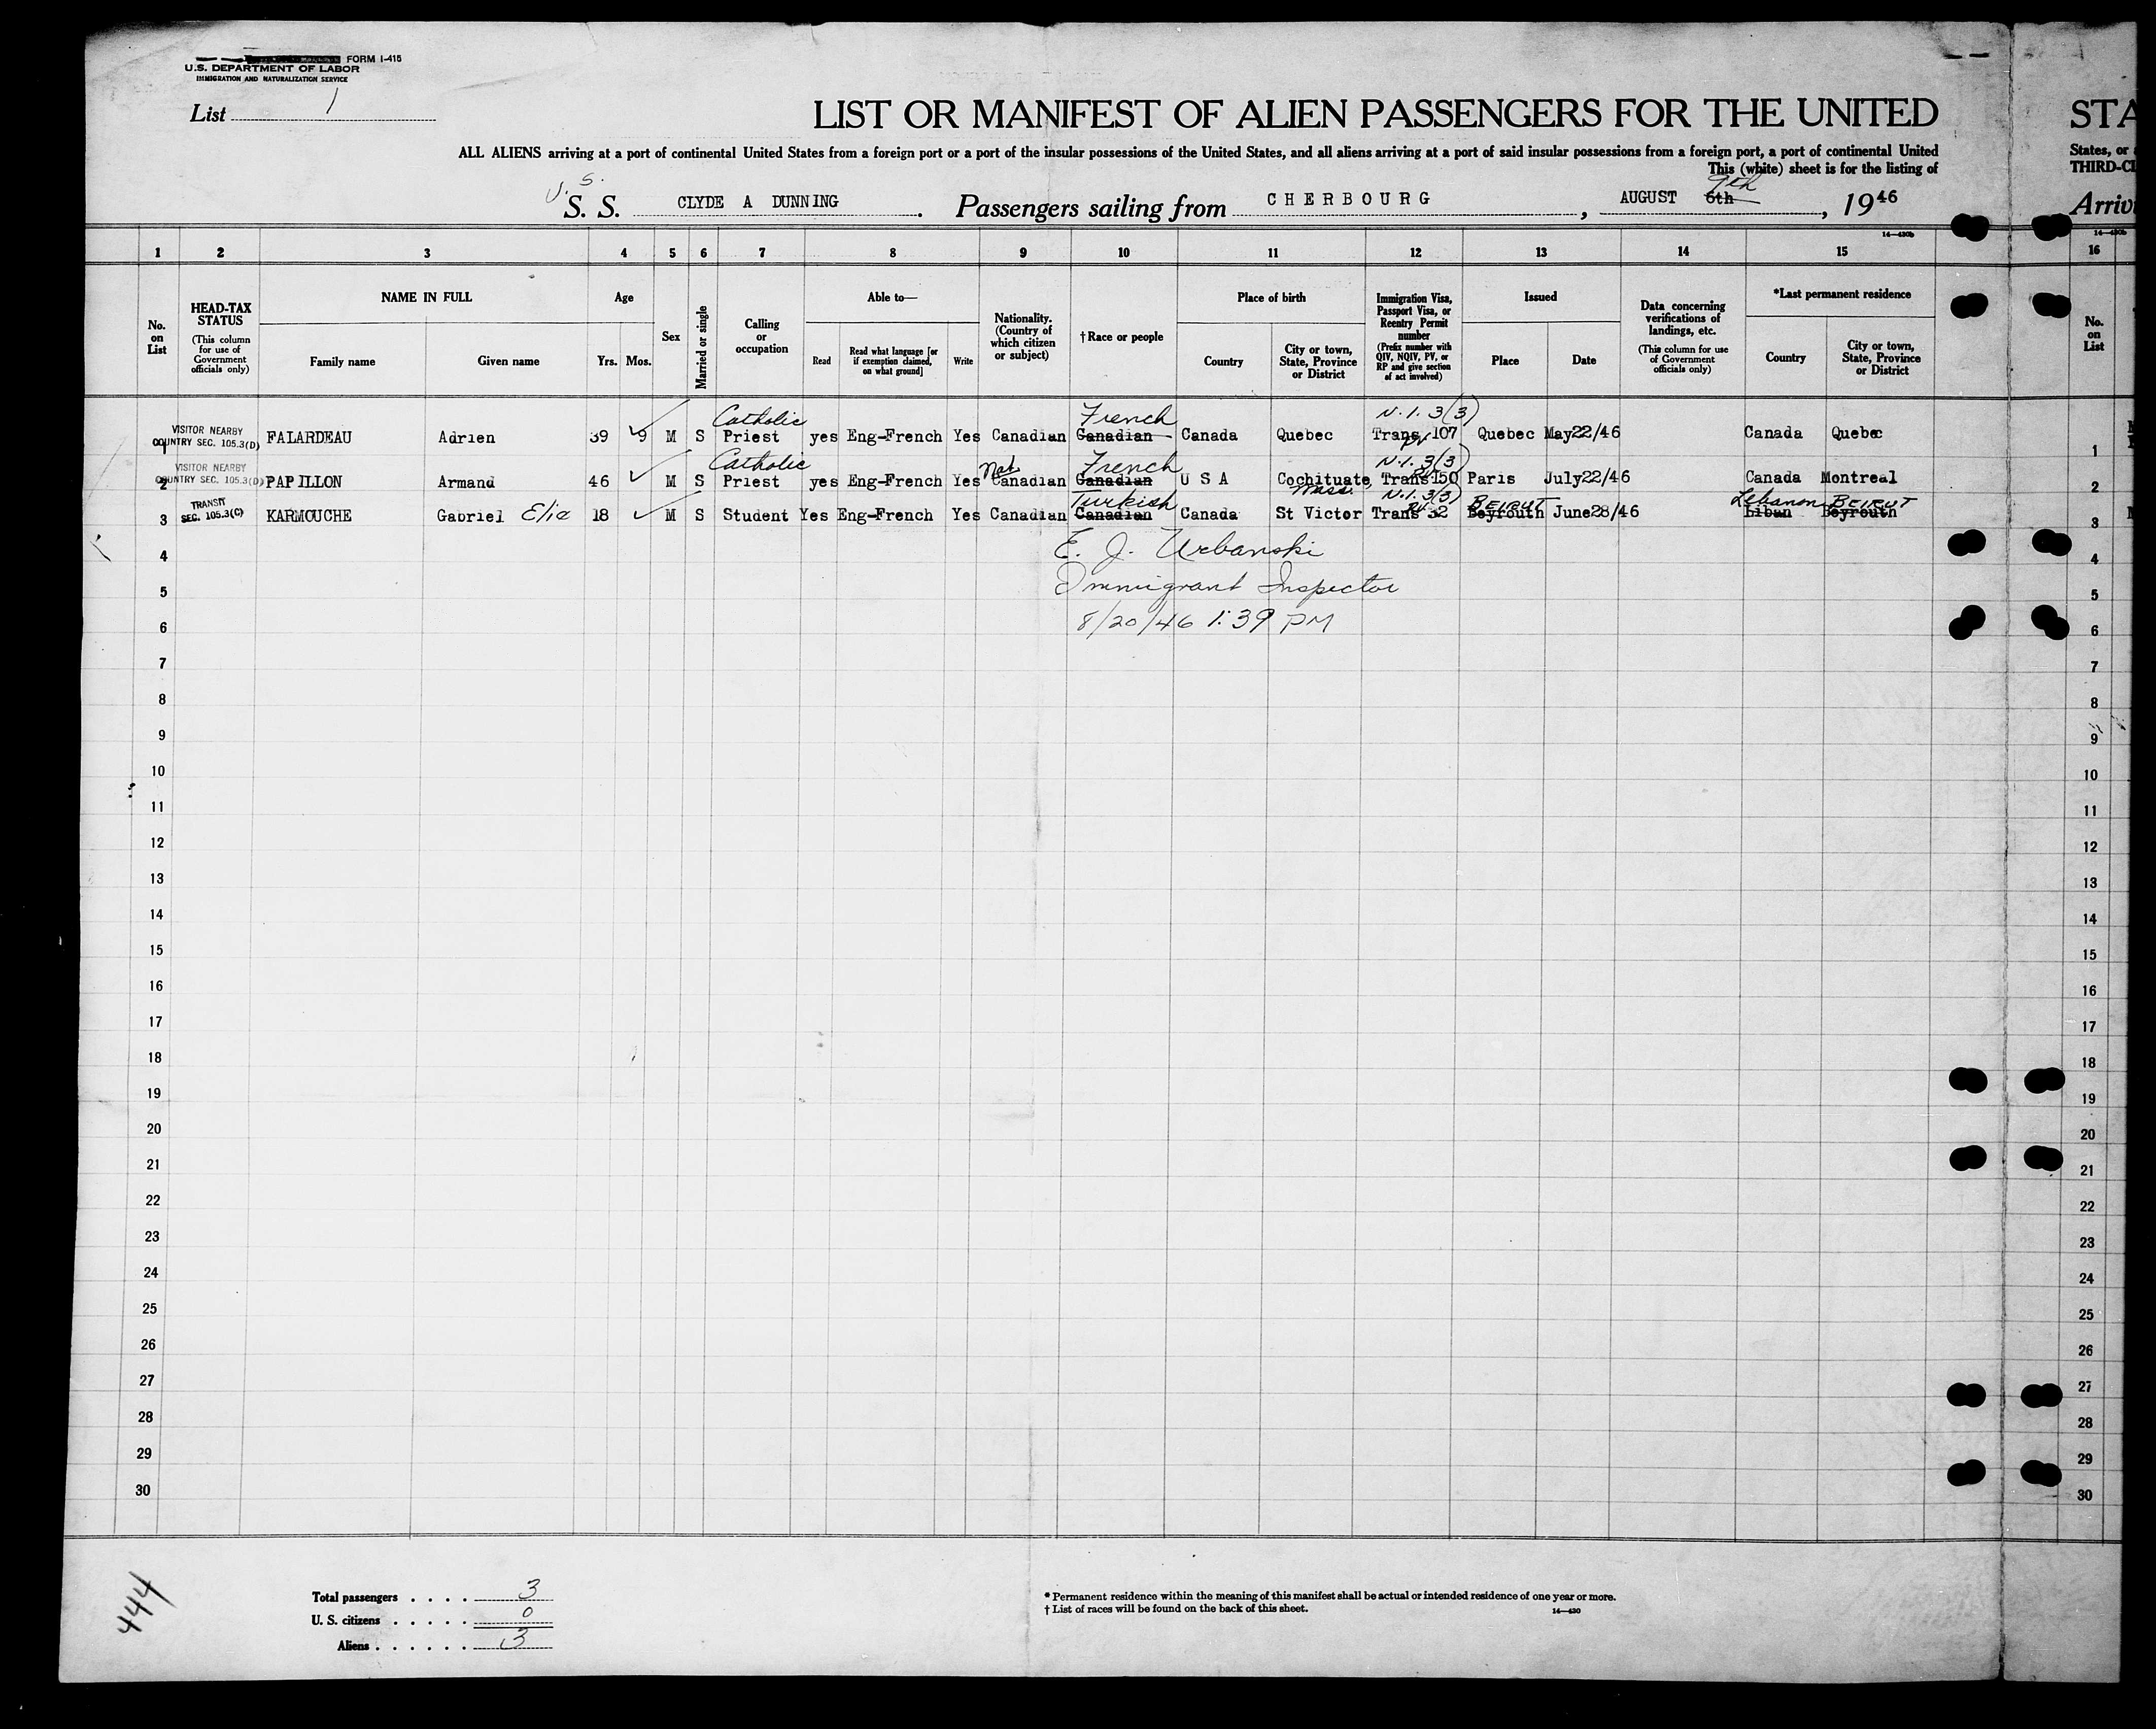 FORM I-415
U.S. DEPARTMENT OF LABOR
IMMIGRATION AND NATURALIZATION SERVICE
List 1
LIST OR MANIFEST OF ALIEN PASSENGERS FOR THE UNITED
STA
ALL ALIENS arriving at a port of continental United States from a foreign port or a port of the insular possessions of the United States, and all aliens arriving at a port of said insular possessions from a foreign port, a port of continental United
States, or
This (white) sheet is for the listing of
THIRD-CL
U.S. S. S. CLYDE A DUNNING. Passengers sailing from CHERBOURG, AUGUST 6th 9th, 1946
Arriv
14—430b
1 2 3 4 5 6 7 8 9 10 11 12 13 14 15 16
No. on List
HEAD-TAX STATUS
(This column for use of Government officials only)
NAME IN FULL
Family name
Given name
Age
Yrs. Mos.
Sex
Married or single
Calling or occupation
Able to—
Read
Read what language [or if exemption claimed, on what ground]
Write
Nationality. (Country of which citizen or subject)
†Race or people
Place of birth
Country
City or town, State, Province or District
Immigration Visa, Passport Visa, or Reentry Permit number
(Prefix number with QIV, NQIV, PV, or RP and give section of act involved)
Issued
Place
Date
Data concerning verifications of landings, etc.
(This column for use of Government officials only)
*Last permanent residence
Country
City or town, State, Province or District
No. on List
Catholic French N.I. 3(3)
1 VISITOR NEARBY COUNTRY SEC. 105.3(D) FALARDEAU Adrien 39 9 M S Priest yes Eng-French Yes Canadian Canadian Canada Quebec Trans PV 107 Quebec May22/46 Canada Quebec 1
Catholic Nat French N.I. 3(3)
2 VISITOR NEARBY COUNTRY SEC. 105.3(D) PAPILLON Armand 46 M S Priest yes Eng-French Yes Canadian Canadian U S A Cochituate, Mass. Trans PV 150 Paris July22/46 Canada Montreal 2
Turkish N.I. 3(3) BEIRUT Lebanon BEIRUT
3 TRANSIT SEC. 105.3(C) KARMOUCHE Gabriel Elie 18 M S Student Yes Eng-French Yes Canadian Canadian Canada St Victor Trans PV 32 Beyrouth June28/46 Liban Beyrouth 3
4 E. J. Urbanski 4
5 Immigrant Inspector 5
6 8/20/46 1:39 PM 6
7 7
8 8
9 9
10 10
11 11
12 12
13 13
14 14
15 15
16 16
17 17
18 18
19 19
20 20
21 21
22 22
23 23
24 24
25 25
26 26
27 27
28 28
29 29
30 30
444
Total passengers . . . . 3
U. S. citizens . . . . . 0
Aliens . . . . . . 3
* Permanent residence within the meaning of this manifest shall be actual or intended residence of one year or more.
† List of races will be found on the back of this sheet.
14—430